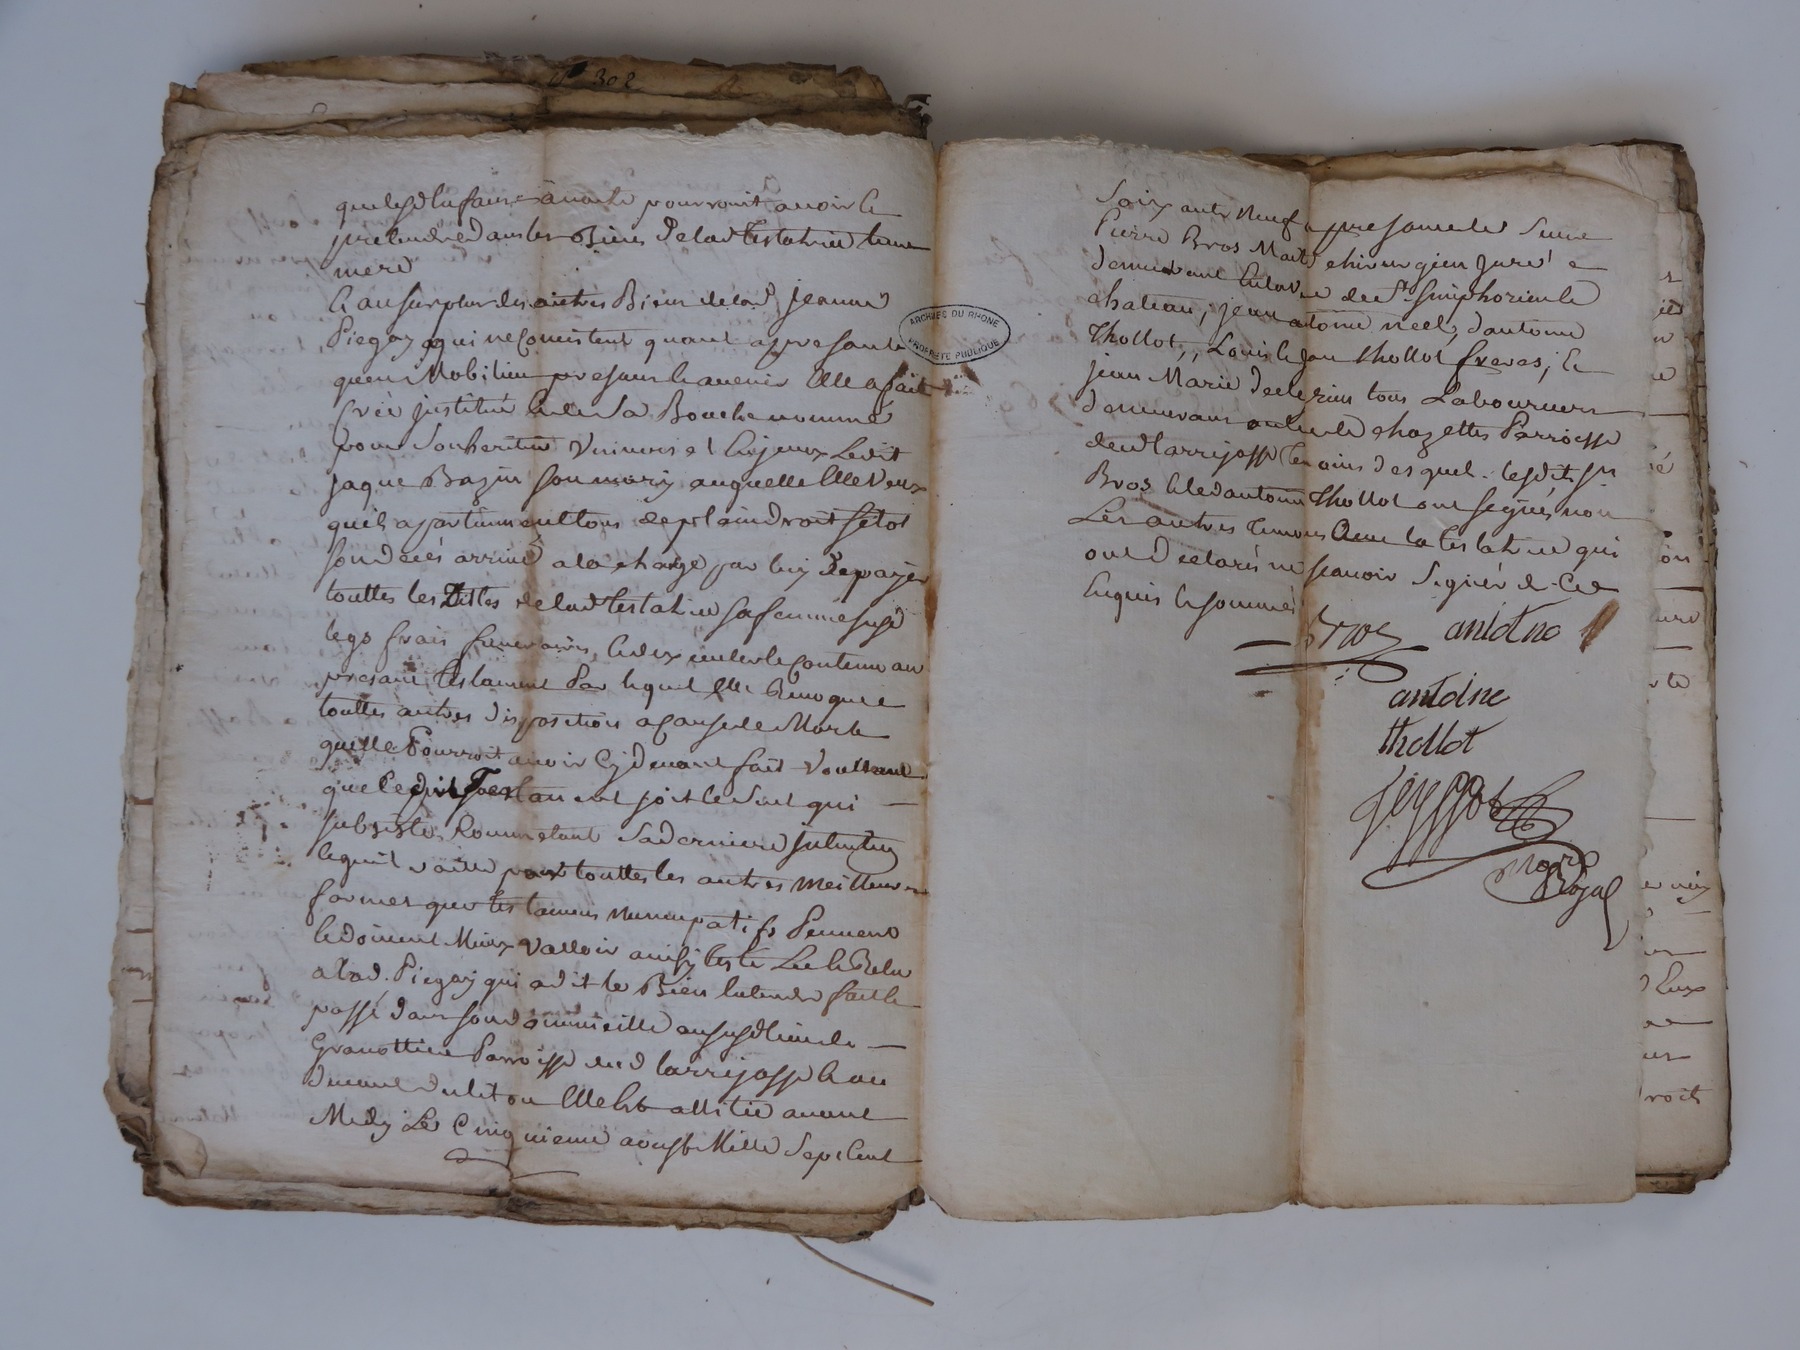 302
pourroit avoir le
pretendre dans les Biens de lad testatrice leur
mere
Et au surplus des autres Biens de lad jeanne
Piegay qui ne Consistent quant apresante
quen Mobilier presans et avenir Elle a fait
Créé jnstitué de Sa Bouche nommé
pour Son heritier Vniversel Ledit
jaque Bazin son mary auquelle Elle Veux
quils apartiennent tous de plain droit sitot
son decés arrivé a la charge par luy de payer
touttes les Dittes de lad testatrice sa femme
legs frais funeraires, et dexecuter le Contenu au
presant testament Par lequel Elle Revoque
touttes autres disposition a Cause de Mort
quelle Pourroit avoir Cy devant fait Voullant
que le dit Testament soit le Seul qui
subsiste Comme etant Sa derniere jntention
lequel vaille pour touttes les autres Meilleures
formes que testamens nuncupatifs Peuvent
et doivent Mieux Valloir ainsy testé Lu et Relu
a lad. Piegay qui a dit le Bien Entendre fait et
passé dans son domicille au susd lieu de
Granottiere Parroisse dud larrajasse et au
devant du lit ou Elle Est allitée avant
Midy Le Cinquieme aoust Mille Sept Cent
Soixante Neuf en presance de Sieur
Pierre Bros Maitre chirurgien Juré
demeurant de St Simphorien le
chateau, jean antoine neel, antoine
thollot, Louis thollot freres, et
jean Marie tous Laboureurs
demeurans au lieu de chazottes Parroisse
dud larrajasse temoins desquels lesdits Sr
Bros et led antoine thollot ont signés non
Les autres temoins avec la testatrice qui
ont declarés ne scavoir Signer de Ce
Enquis et sommés
Bros antoine
antoine
thollot
Royal
ARCHIVES DU RHONE
PROPRIETE PUBLIQUE